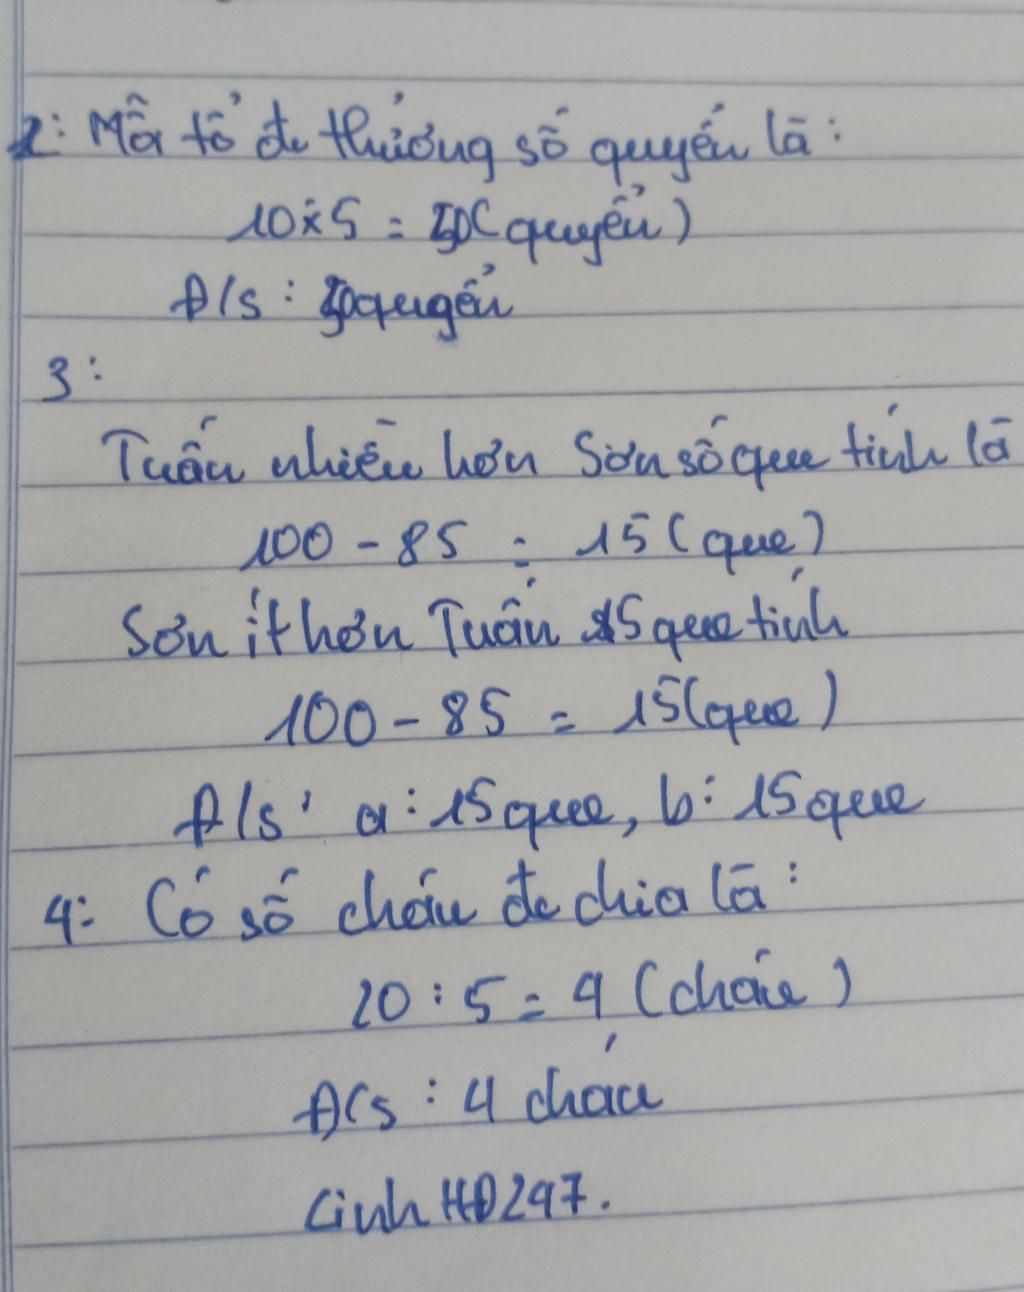 2: Mỗi tổ đc thưởng số quyển là:
10 x 5 = 50 (quyển)
Đ/s: 50 quyển
3:
Tuấn nhiều hơn Sơn số que tính là
100 - 85 = 15 (que)
Sơn ít hơn Tuấn 15 que tính
100 - 85 = 15 (que)
Đ/s: a: 15 que, b: 15 que
4: Có số cháu đc chia là:
20 : 5 = 4 (cháu)
Đ/s: 4 cháu
Linh HD247.